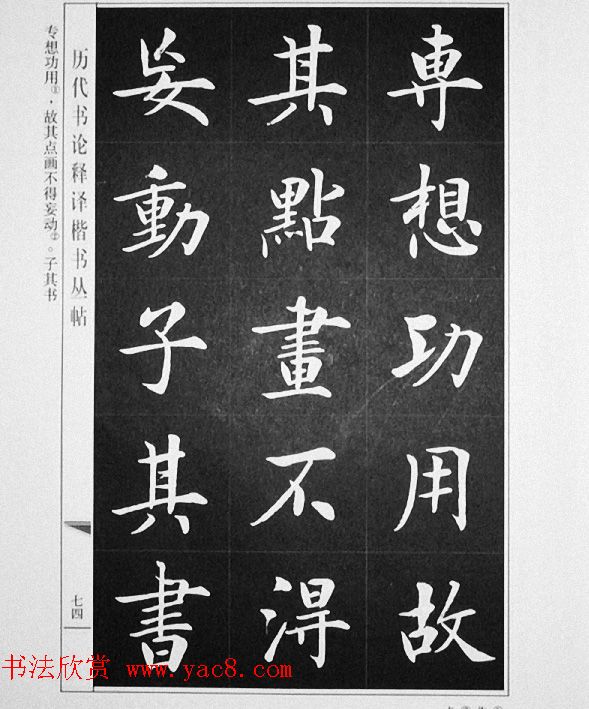 專想功用故
其點畫不淂
妄動子其書
历代书论释译楷书丛帖
专想功用①，故其点画不得妄动②。子其书
七四
书法欣赏 www.yac8.com